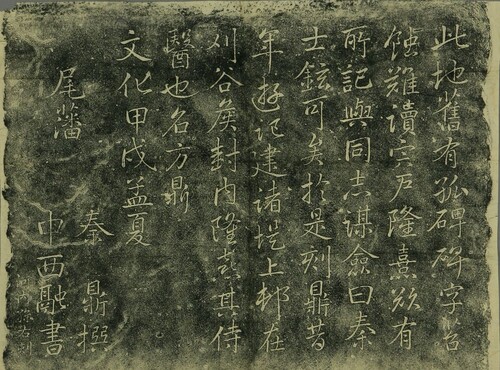 此地舊有孤碑碑字苔
蝕難讀宍戸隆熹欲有
所記與同志謀僉曰秦
士鉉可矣於是刻鼎昔
年遊記建諸堤上邨在
刈谷侯封内隆熹其侍
醫也名方鼎
文化甲戌孟夏
尾藩
秦鼎撰
中西融書